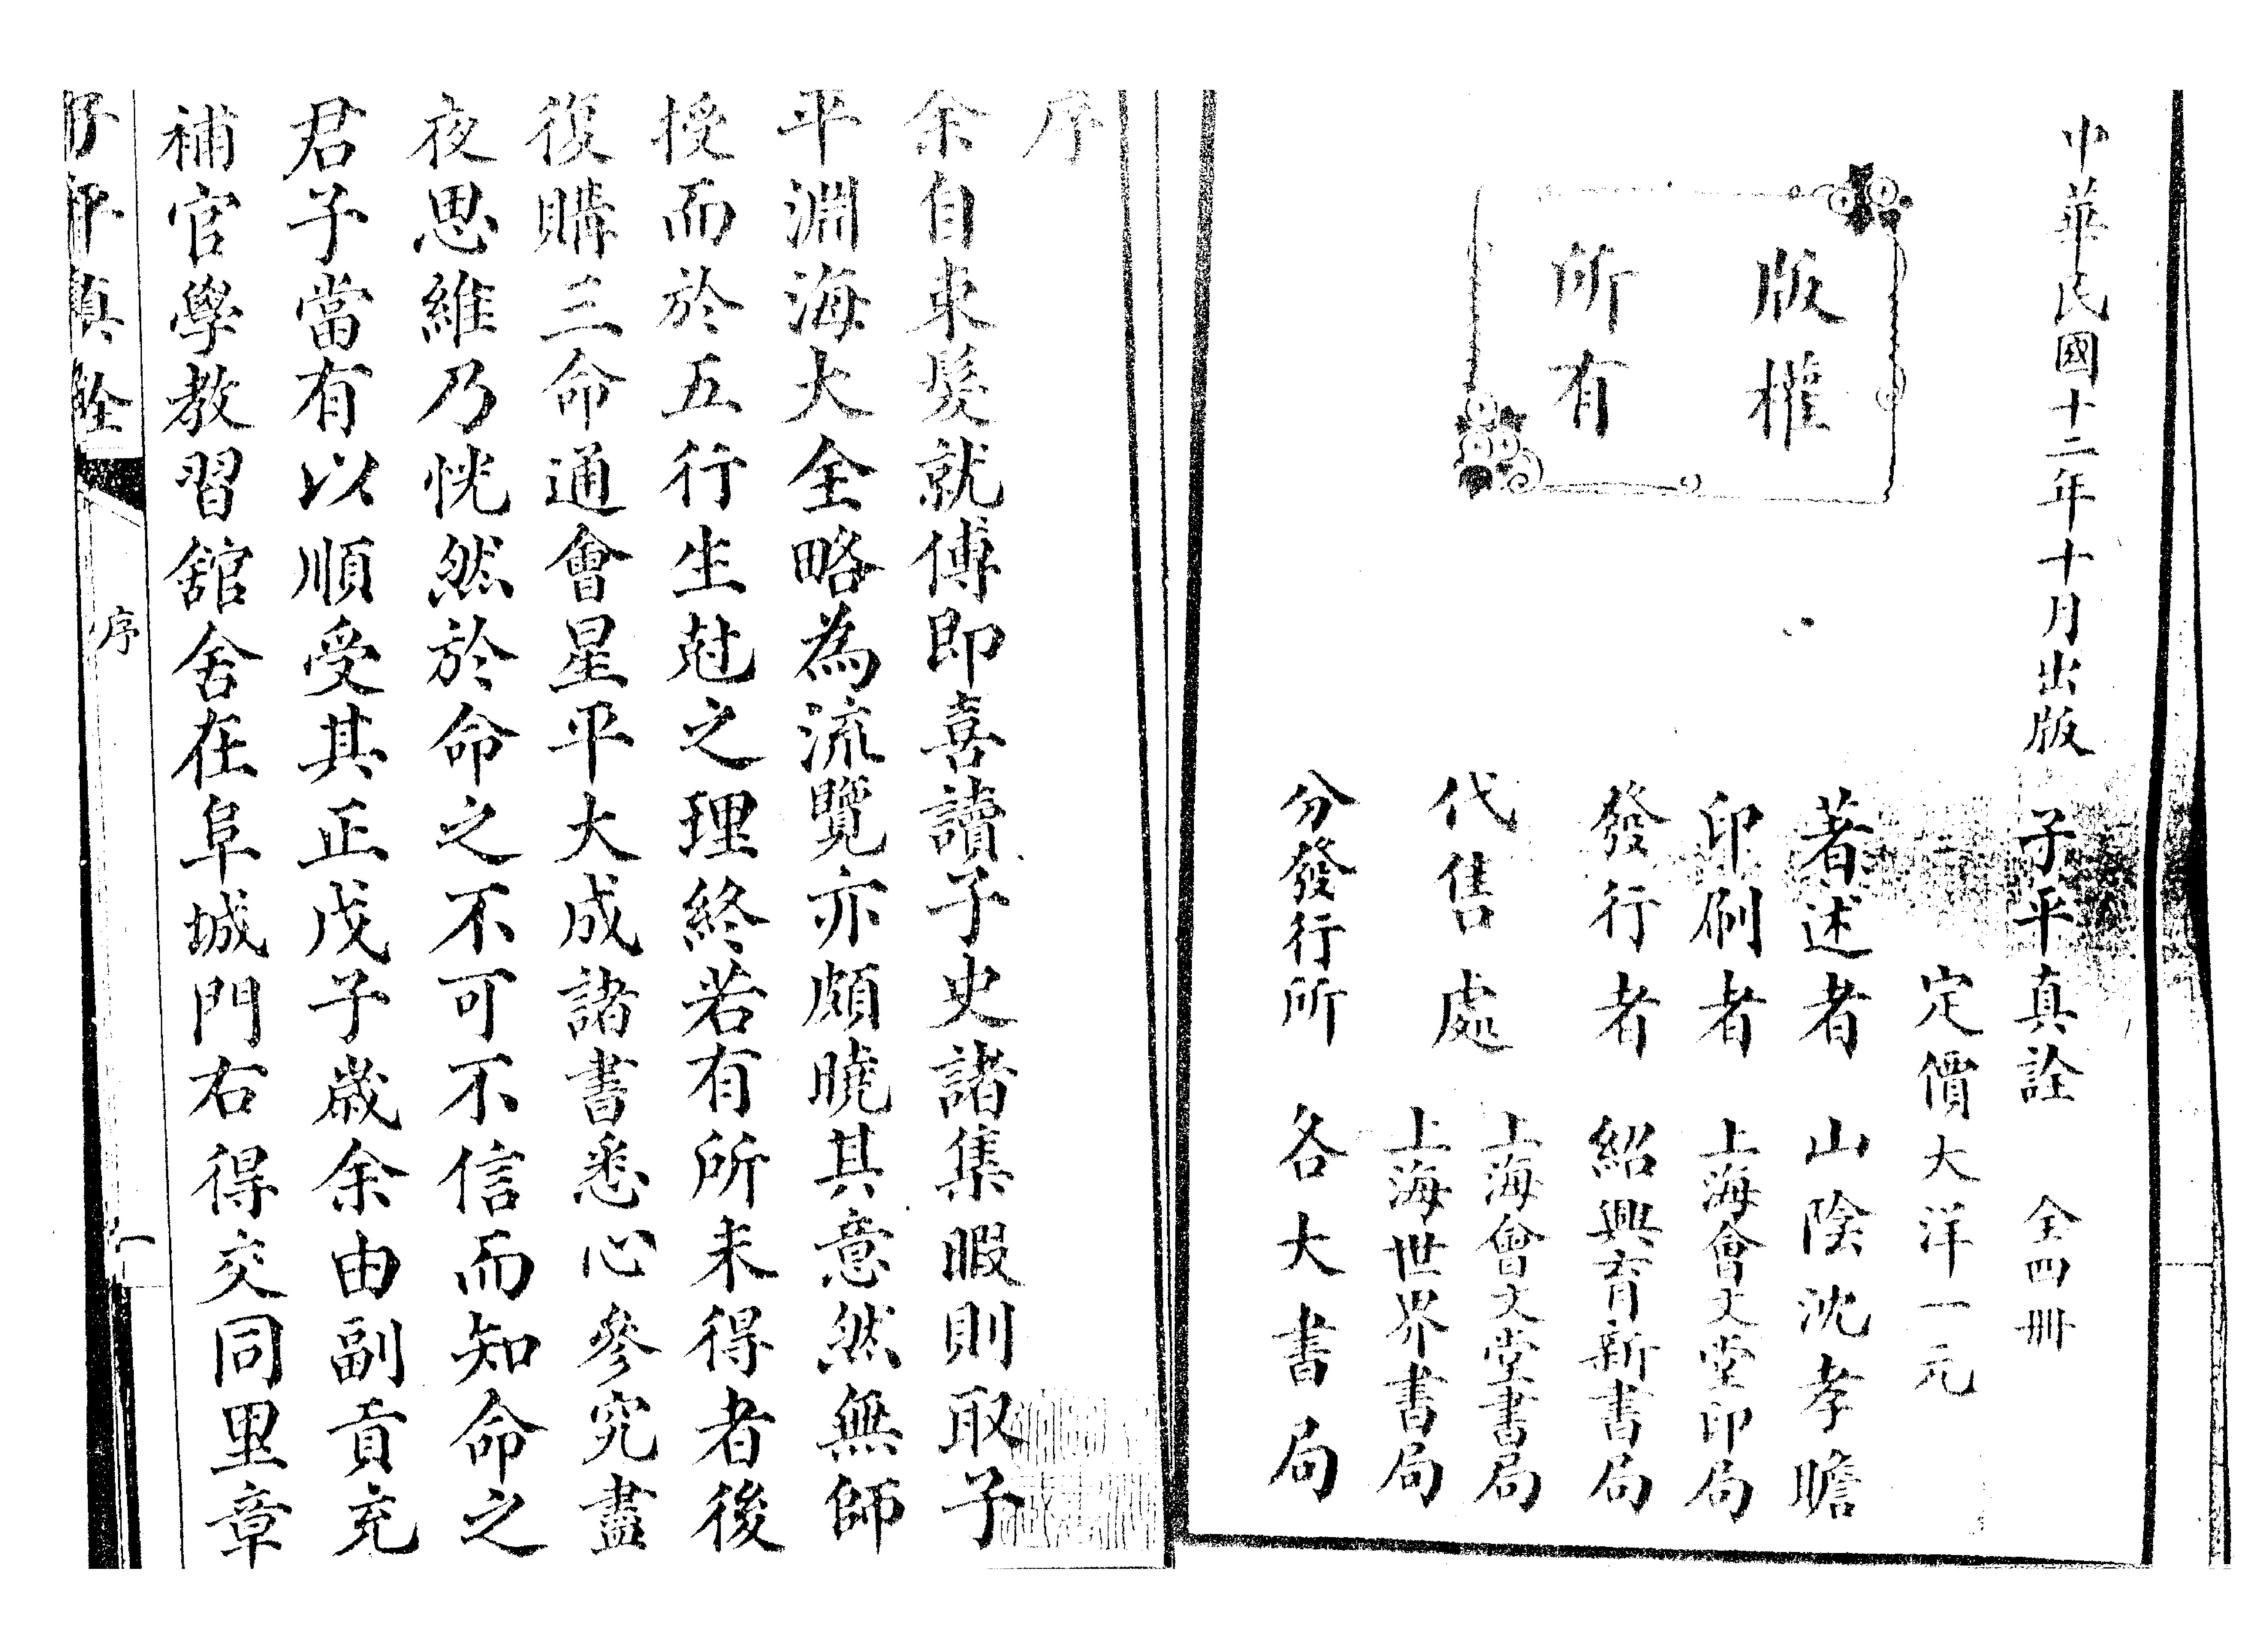 中華民國十二年十月出版
版權
所有
子平真詮 全四冊
定價大洋一元
著述者 山陰沈孝瞻
印刷者 上海會文堂印局
發行者 紹興育新書局
代售處 上海會文堂書局
上海世界書局
分發行所 各大書局
序
余自束髮就傅即喜讀子史諸集暇則取子
平淵海大全略為流覽亦頗曉其意然無師
授而於五行生尅之理終若有所未得者後
復購三命通會星平大成諸書悉心參究盡
夜思維乃恍然於命之不可不信而知命之
君子當有以順受其正戊子歲余由副貢充
補官學教習舘舍在阜城門右得交同里章
子平真詮 序 一